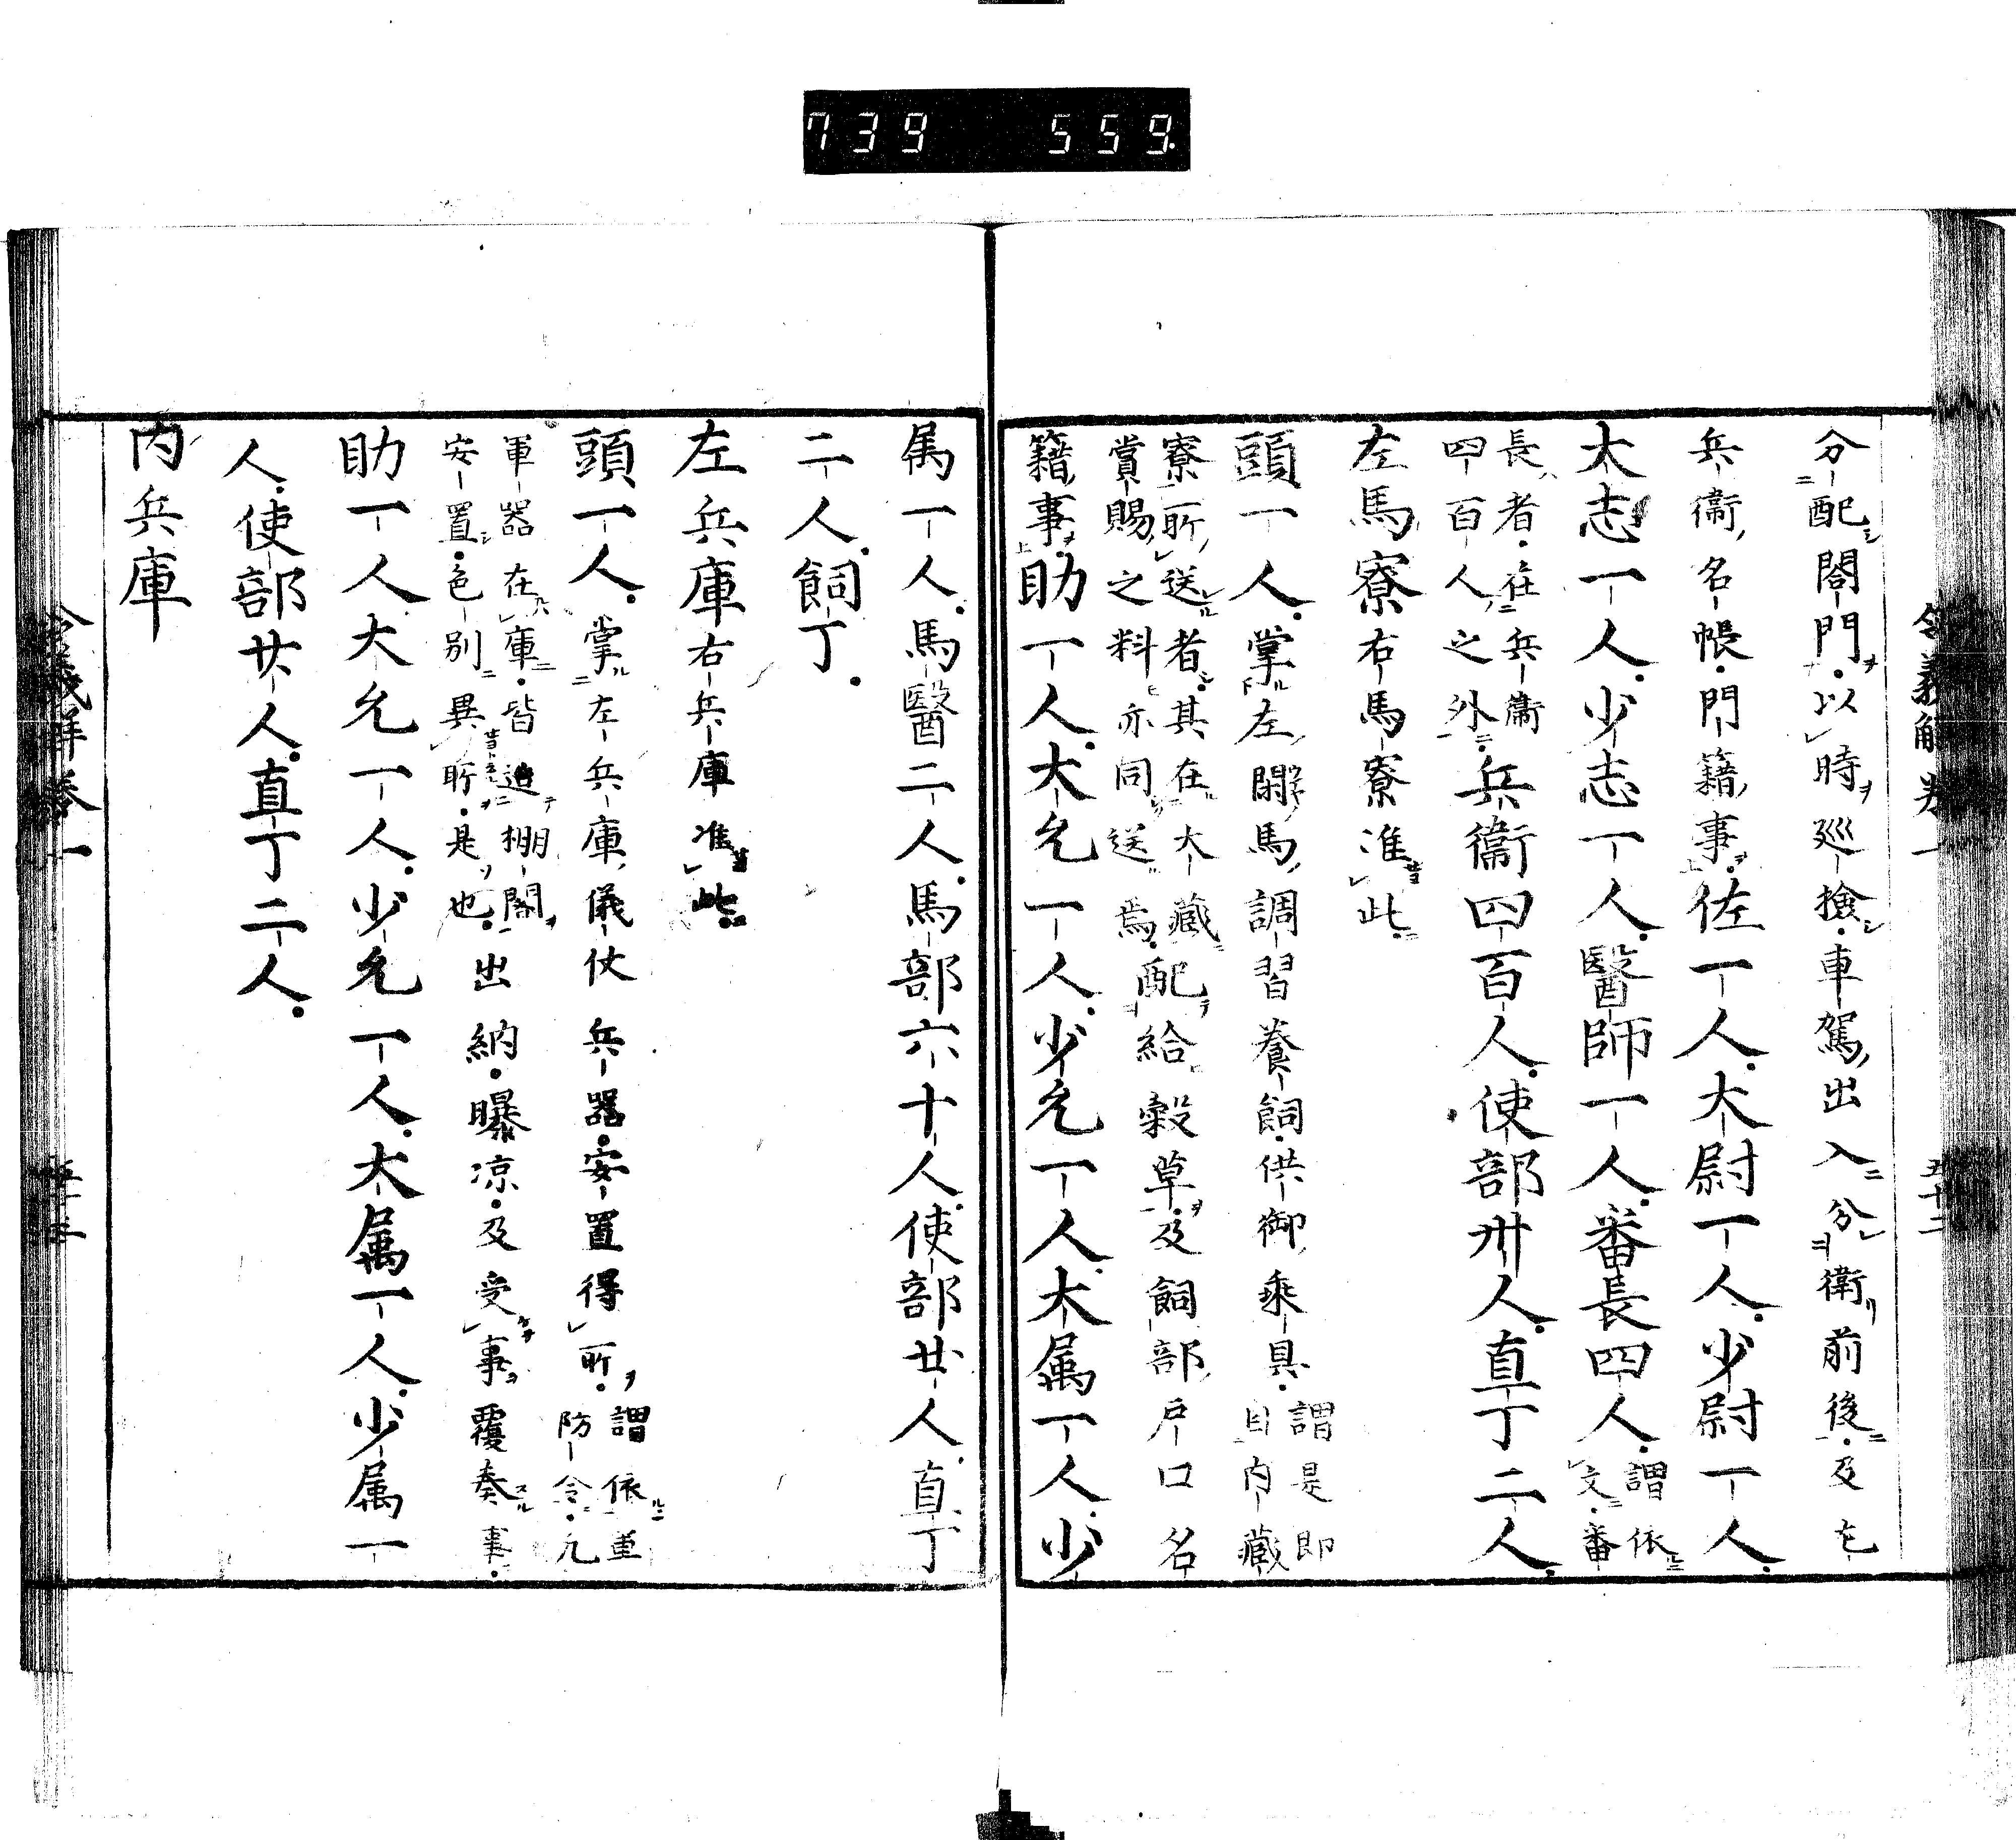 739 559
令義解卷一 五十二
分配閤門以時巡撿車駕出入分衛前後及左
兵衞名帳門籍事佐一人大尉一人少尉一人
大志一人少志一人醫師一人番長四人謂依文番
長者在兵衞四百人之外兵衞四百人使部卅人直丁二人
左馬寮右馬寮准此
頭一人掌左閑馬調習養飼供御乘具謂是即自內藏
寮所送者其在大藏賞賜之料亦同送焉配給穀草及飼部戶口名
籍事助一人大允一人少允一人大属一人少
属一人馬醫二人馬部六十人使部廿人直丁
二人飼丁
左兵庫右兵庫准此
頭一人掌左兵庫儀仗兵器安置得所謂依軍防令凡
軍器在庫皆造棚閣安置色別異所是也出納曝凉及受事覆奏事
助一人大允一人少允一人大属一人少属一
人使部廿人直丁二人
內兵庫
令義解卷一